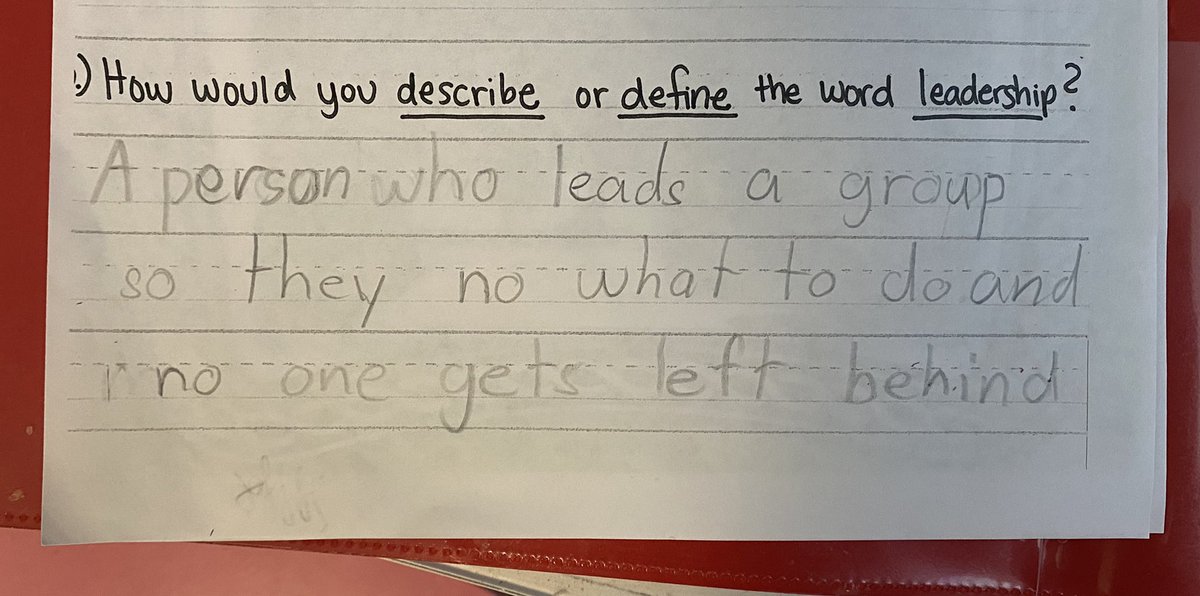 .) How would you describe or define the word leadership?
A person who leads a group
so they no what to do and
no one gets left behind